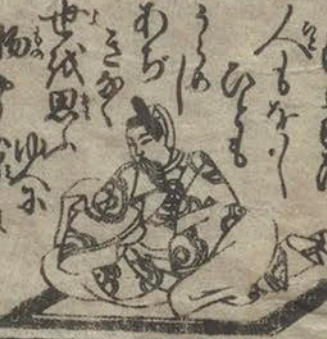 人もをし
ひとも
うらめし
あぢ
きなく
世を思ふ
ゆへに
物